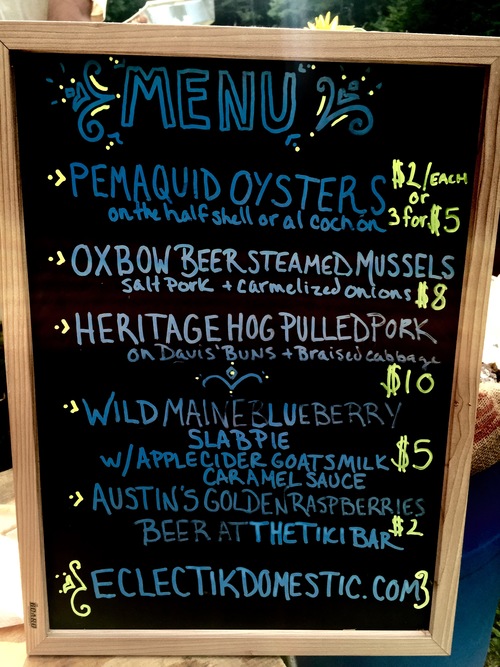 MENU
PEMAQUID OYSTERS $2/EACH
on the half shell or al cochon or 3 for $5
OXBOW BEER STEAMED MUSSELS
salt pork + carmelized onions $8
HERITAGE HOG PULLED PORK
on DAVIS' BUNS + Braised cabbage
$10
WILD MAINE BLUEBERRY
SLAB PIE
W/APPLE CIDER GOATS MILK $5
CARAMEL SAUCE
AUSTIN'S GOLDEN RASPBERRIES
BEER AT THE TIKI BAR $2
ECLECTIKDOMESTIC.COM